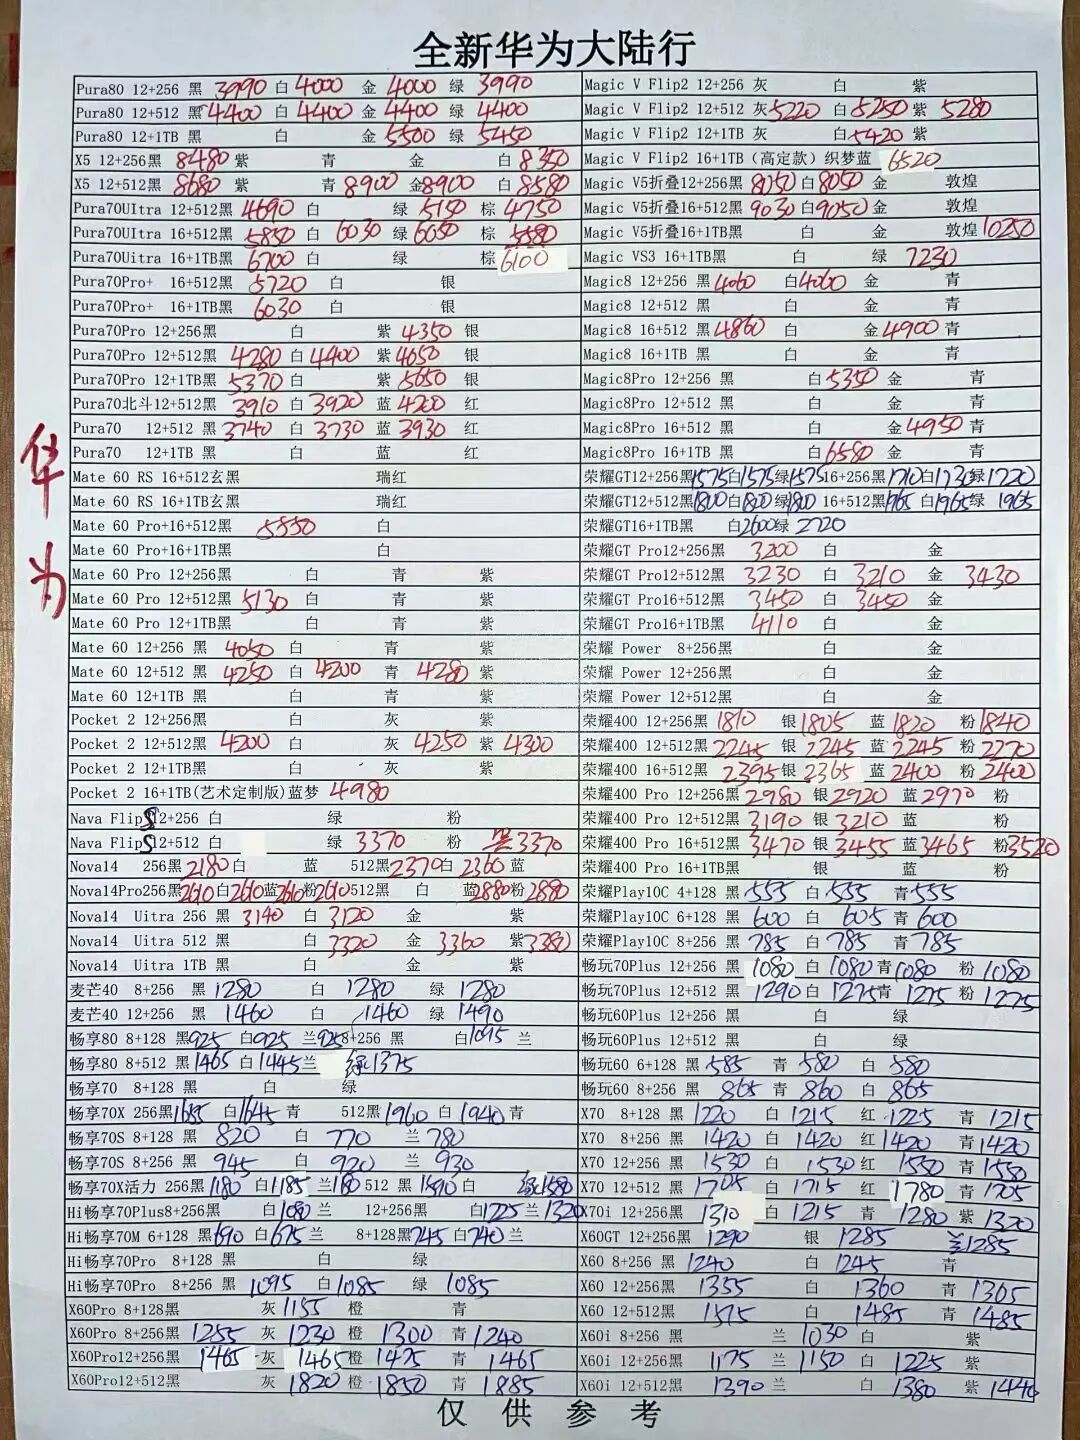 全新华为大陆行
华为
Pura80 12+256 黑 3990 白 4000 金 4000 绿 3990
Pura80 12+512 黑 4400 白 4400 金 4400 绿 4400
Pura80 12+1TB 黑 白 金 5500 绿 5450
X5 12+256黑 8480 紫 青 金 白 8350
X5 12+512黑 8680 紫 青 8900 金 8900 白 8580
Pura70UItra 12+512黑 4690 白 绿 5150 棕 4750
Pura70UItra 16+512黑 5850 白 6030 绿 6050 棕 5580
Pura70Uitra 16+1TB黑 6700 白 绿 棕 6100
Pura70Pro+ 16+512黑 5720 白 银
Pura70Pro+ 16+1TB黑 6030 白 银
Pura70Pro 12+256黑 白 紫 4350 银
Pura70Pro 12+512黑 4280 白 4400 紫 4650 银
Pura70Pro 12+1TB黑 5370 白 紫 5650 银
Pura70北斗12+512黑 3910 白 3920 蓝 4200 红
Pura70 12+512 黑 3740 白 3730 蓝 3930 红
Pura70 12+1TB 黑 白 蓝 红
Mate 60 RS 16+512玄黑 瑞红
Mate 60 RS 16+1TB玄黑 瑞红
Mate 60 Pro+16+512黑 5550 白
Mate 60 Pro+16+1TB黑 白
Mate 60 Pro 12+256黑 白 青 紫
Mate 60 Pro 12+512黑 5130 白 青 紫
Mate 60 Pro 12+1TB黑 白 青 紫
Mate 60 12+256 黑 4050 白 青 紫
Mate 60 12+512 黑 4250 白 4200 青 4280 紫
Mate 60 12+1TB 黑 白 青 紫
Pocket 2 12+256黑 白 灰 紫
Pocket 2 12+512黑 4200 白 灰 4250 紫 4300
Pocket 2 12+1TB黑 白 灰 紫
Pocket 2 16+1TB(艺术定制版)蓝梦 4980
Nava Flip S 12+256 白 绿 粉
Nava Flip S 12+512 白 绿 3370 粉 黑 3370
Nova14 256黑 2180 白 蓝 512黑 2370 白 2360 蓝
Nova14Pro256黑 2610 白 2610 蓝 2610 粉 2610 512黑 白 蓝 2880 粉 2880
Nova14 Uitra 256 黑 3140 白 3120 金 紫
Nova14 Uitra 512 黑 白 3320 金 3360 紫 3380
Nova14 Uitra 1TB 黑 白 金 紫
麦芒40 8+256 黑 1280 白 1280 绿 1280
麦芒40 12+256 黑 1460 白 1460 绿 1490
畅享80 8+128 黑 925 白 925 兰 925 8+256 黑 白 1095 兰
畅享80 8+512 黑 1465 白 1445 兰 绿 1375
畅享70 8+128 黑 白 绿
畅享70X 256黑 1685 白 1645 青 512黑 1960 白 1940 青
畅享70S 8+128 黑 820 白 770 兰 780
畅享70S 8+256 黑 945 白 920 兰 930
畅享70X活力 256黑 1180 白 1185 兰 1180 512 黑 1590 白 绿 1580
Hi畅享70Plus8+256黑 白 1080 12+256黑 白 1225 兰 1320
Hi畅享70M 6+128 黑 690 白 675 兰 8+128黑 745 白 740 兰
Hi畅享70Pro 8+128 黑 白 绿
Hi畅享70Pro 8+256 黑 1095 白 1085 绿 1085
X60Pro 8+128黑 灰 1155 橙 青
X60Pro 8+256黑 1255 灰 1230 橙 1300 青 1240
X60Pro12+256黑 1465 灰 1465 橙 1475 青 1465
X60Pro12+512黑 灰 1820 橙 1850 青 1885
Magic V Flip2 12+256 灰 白 紫
Magic V Flip2 12+512 灰 5220 白 5250 紫 5280
Magic V Flip2 12+1TB 灰 白 5420 紫
Magic V Flip2 16+1TB（高定款）织梦蓝 6520
Magic V5折叠12+256黑 8050 白 8050 金 敦煌
Magic V5折叠16+512黑 9030 白 9050 金 敦煌
Magic V5折叠16+1TB黑 白 金 敦煌 10250
Magic VS3 16+1TB黑 白 绿 7230
Magic8 12+256 黑 4060 白 4060 金 青
Magic8 12+512 黑 白 金 青
Magic8 16+512 黑 4860 白 金 4900 青
Magic8 16+1TB 黑 白 金 青
Magic8Pro 12+256 黑 白 5350 金 青
Magic8Pro 12+512 黑 白 金 青
Magic8Pro 16+512 黑 白 金 4950 青
Magic8Pro 16+1TB 黑 白 6580 金 青
荣耀GT12+256黑 1575 白 1575 绿 1575 16+256黑 1710 白 1730 绿 1720
荣耀GT12+512黑 1800 白 1800 绿 1800 16+512黑 1965 白 1965 绿 1965
荣耀GT16+1TB黑 白 2600 绿 2720
荣耀GT Pro12+256黑 3200 白 金
荣耀GT Pro12+512黑 3230 白 3210 金 3430
荣耀GT Pro16+512黑 3450 白 3450 金
荣耀GT Pro16+1TB黑 4110 白 金
荣耀 Power 8+256黑 白 金
荣耀 Power 12+256黑 白 金
荣耀 Power 12+512黑 白 金
荣耀400 12+256黑 1810 银 1805 蓝 1820 粉 1840
荣耀400 12+512黑 2245 银 2245 蓝 2245 粉 2270
荣耀400 16+512黑 2395 银 2365 蓝 2400 粉 2400
荣耀400 Pro 12+256黑 2980 银 2920 蓝 2970 粉
荣耀400 Pro 12+512黑 3190 银 3210 蓝 粉
荣耀400 Pro 16+512黑 3470 银 3455 蓝 3465 粉 3520
荣耀400 Pro 16+1TB黑 银 蓝 粉
荣耀Play10C 4+128 黑 555 白 555 青 555
荣耀Play10C 6+128 黑 600 白 605 青 600
荣耀Play10C 8+256 黑 785 白 785 青 785
畅玩70Plus 12+256 黑 1080 白 1080 青 1080 粉 1080
畅玩70Plus 12+512 黑 1290 白 1275 青 1275 粉 1275
畅玩60Plus 12+256 黑 白 绿
畅玩60Plus 12+512 黑 白 绿
畅玩60 6+128 黑 585 青 580 白 580
畅玩60 8+256 黑 865 青 860 白 865
X70 8+128 黑 1220 白 1215 红 1225 青 1215
X70 8+256 黑 1420 白 1420 红 1420 青 1420
X70 12+256 黑 1530 白 1530 红 1550 青 1550
X70 12+512 黑 1705 白 1715 红 1780 青 1705
X70i 12+256黑 1310 白 1215 青 1280 紫 1320
X60GT 12+256黑 1290 银 1285 兰 1285
X60 8+256 黑 1240 白 1245 青
X60 12+256 黑 1355 白 1360 青 1365
X60 12+512黑 1515 白 1485 青 1485
X60i 8+256 黑 兰 1030 白 紫
X60i 12+256黑 1175 兰 1150 白 1225 紫
X60i 12+512黑 1390 兰 白 1380 紫 1440
仅供参考